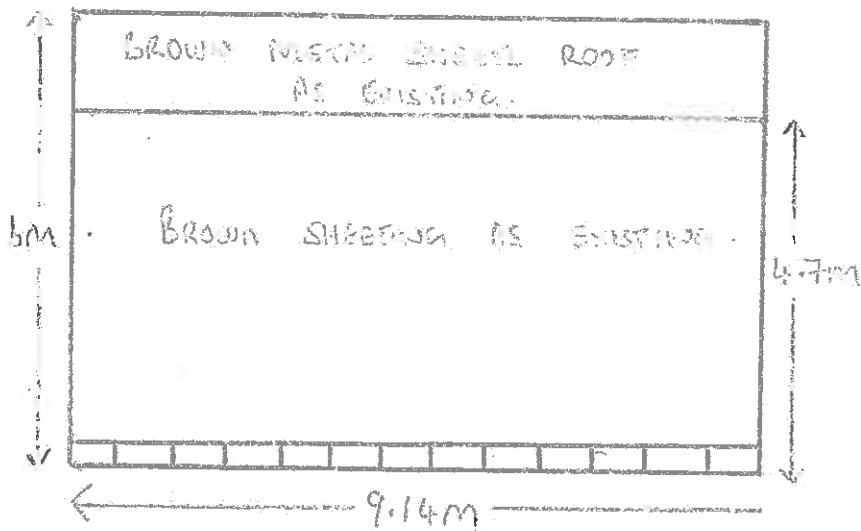 BROWN METAL SHEET ROOF
AS EXISTING.
6M
BROWN SHEETING AS EXISTING
4.7M
9.14M